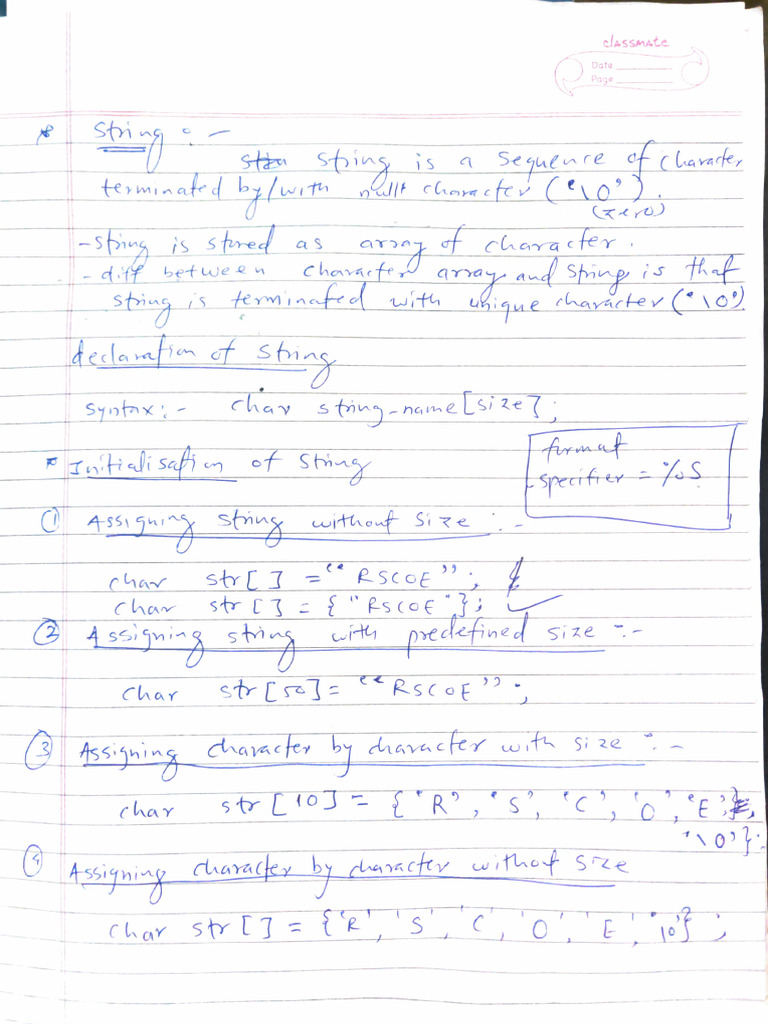 classmate
Date
Page
* String :-
String is a sequence of character
terminated by/with null character ('\0').
(zero)
- String is stored as array of character.
- diff between character array and string is that
string is terminated with unique character ('\0')
declaration of string
syntax:- char string_name[size];
* Initialisation of string
format
specifier = %s
① Assigning string without size :-
char str[ ] = "RSCOE";
char str[ ] = {"RSCOE"};
② Assigning string with predefined size :-
char str[50] = "RSCOE";
③ Assigning character by character with size :-
char str[10] = {'R', 'S', 'C', 'O', 'E',
'\0'};
④ Assigning character by character without size
char str[ ] = {'R', 'S', 'C', 'O', 'E', '\0'};